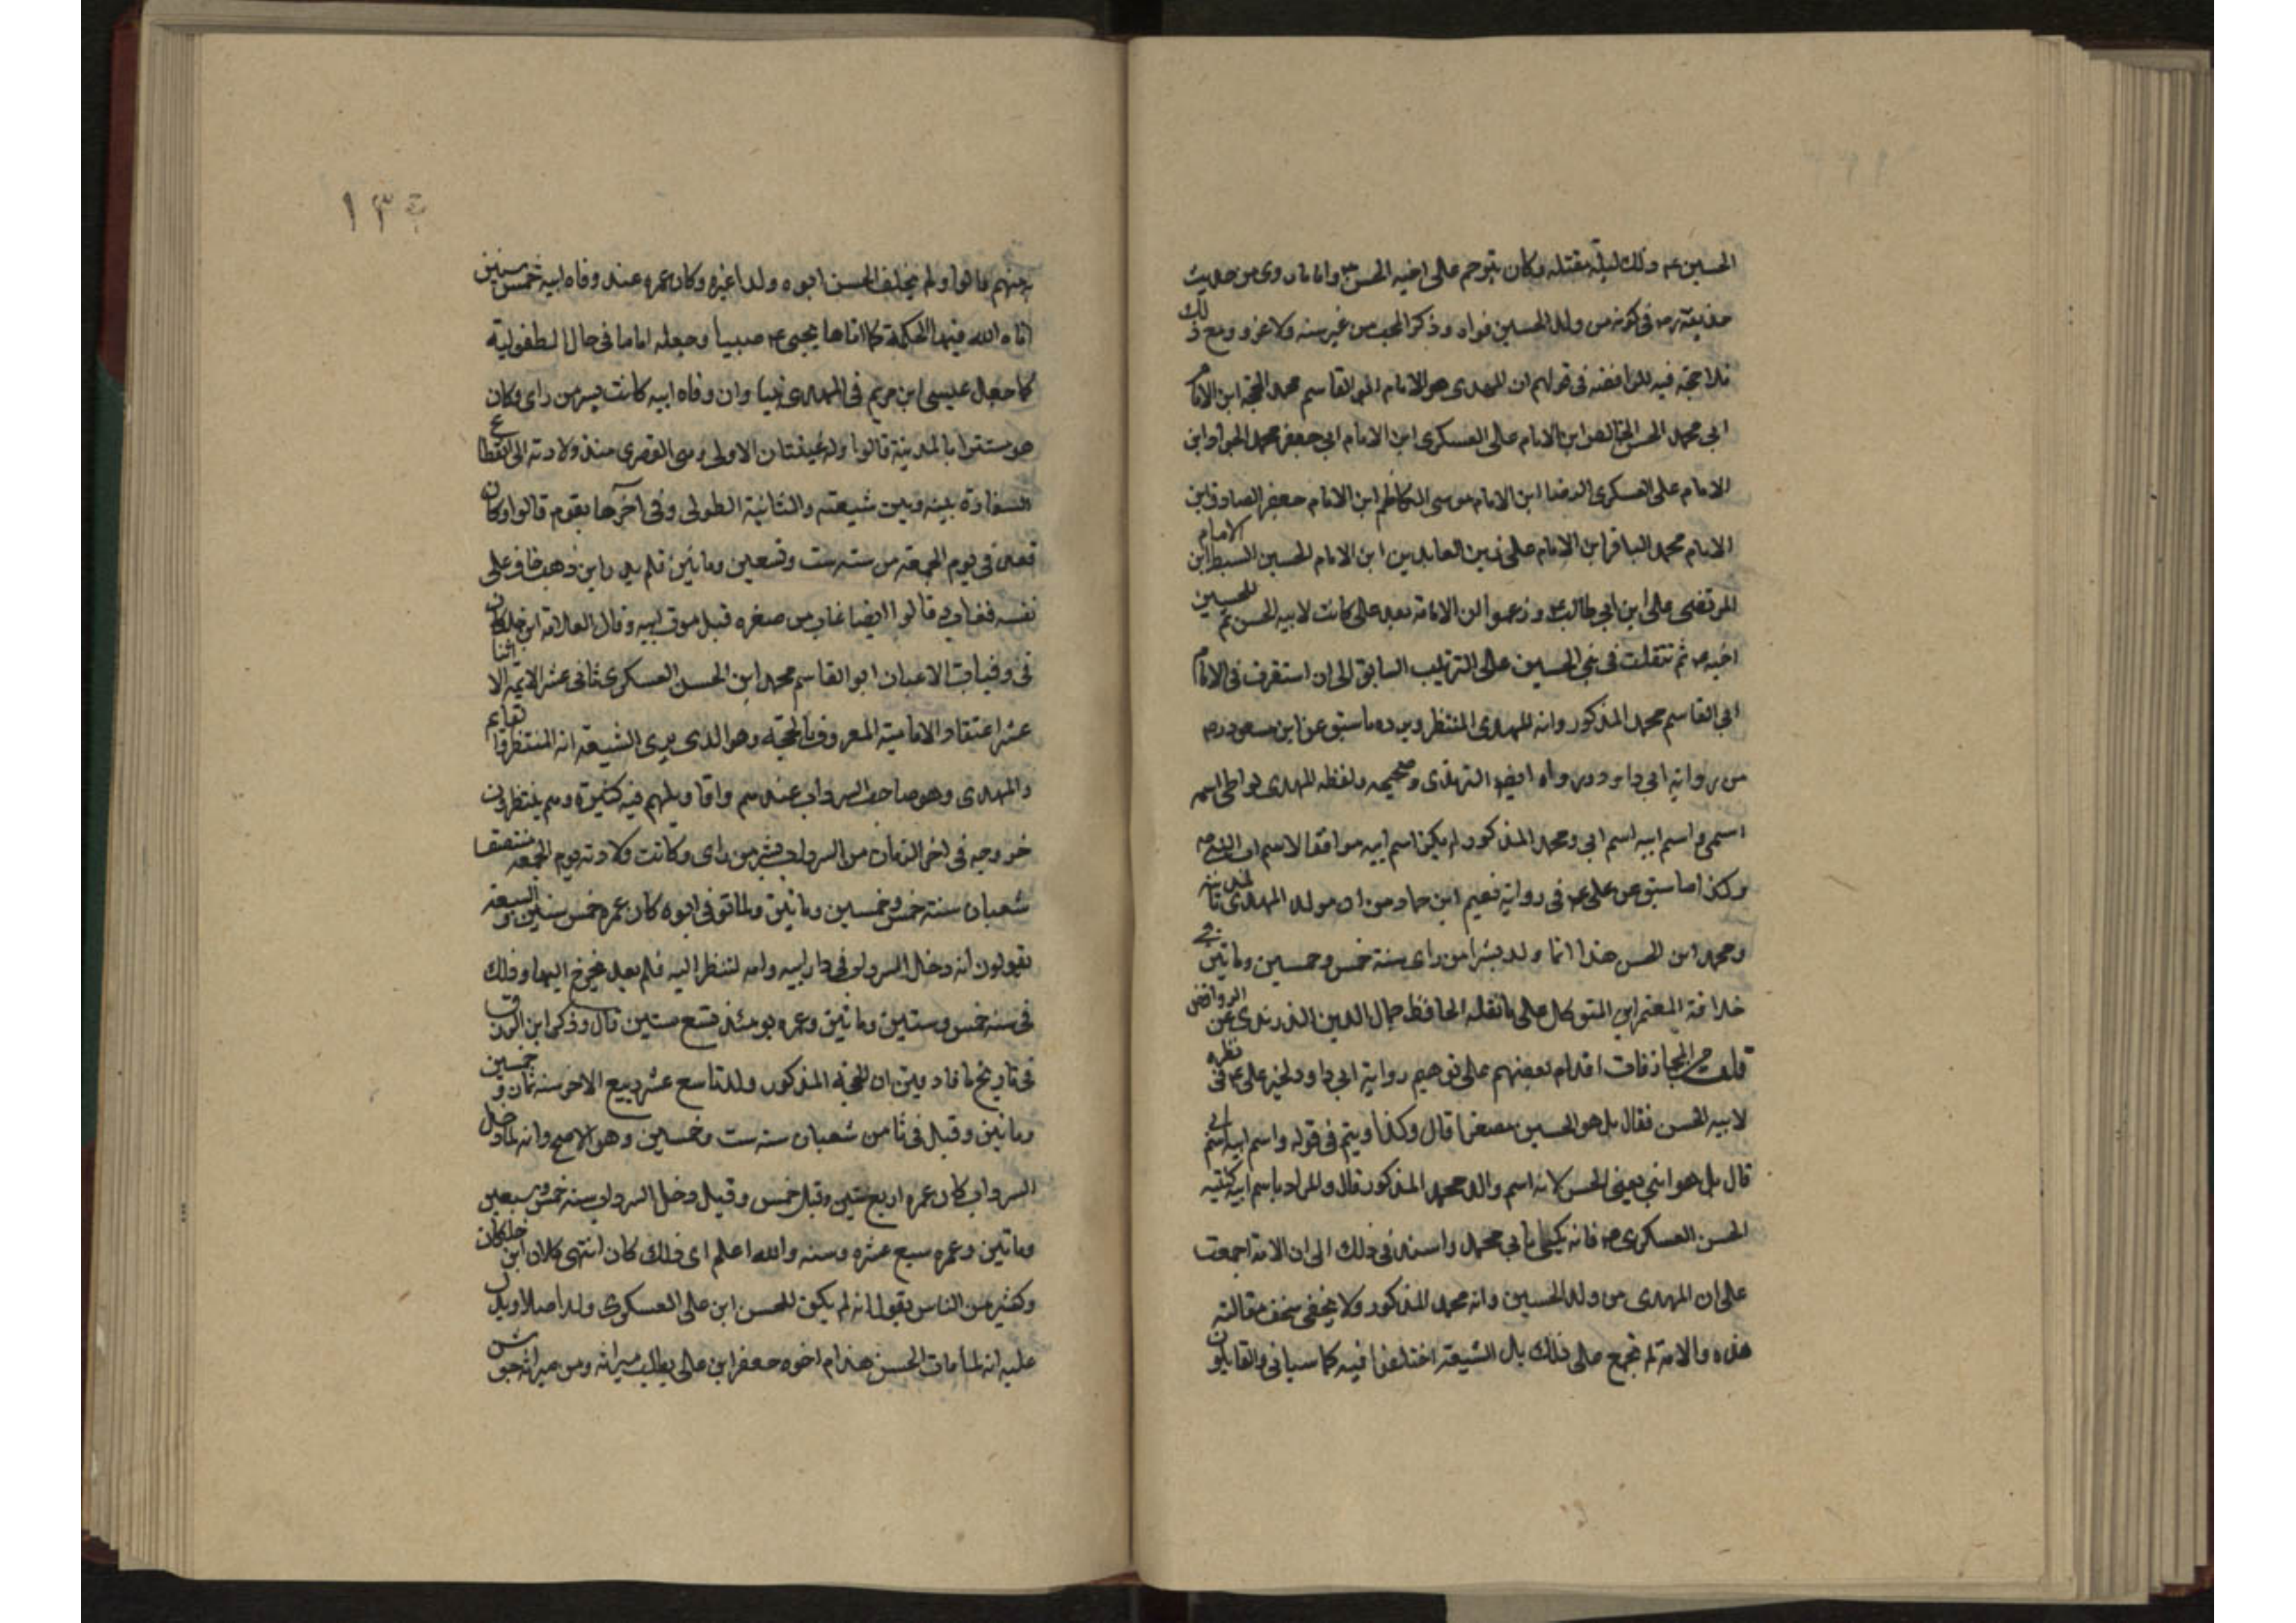 الحسين ع‍م وذلك ليلة مقتله وكان يترحم على اخيه الحسن ع‍م واما ما روى من حديث
حذيفة رض في كونه من ولد الحسين فواه وذكر المحب من غير سنه ولا عزو ومع ذلك
فلا حجة فيه للرافضه في قولهم ان المهدى هو الامام ابو القاسم محمد الحجة ابن الامام
ابي محمد الحسن الخالص ابن الامام على العسكرى ابن الامام ابي جعفر محمد الجواد ابن
الامام على العسكرى الرضا ابن الامام موسى الكاظم ابن الامام جعفر الصادق ابن
الامام محمد الباقر ابن الامام على زين العابدين ابن الامام الحسين السبط ابن الامام
المرتضى على ابن ابي طالب وزعموا ان الامامة بعد على كانت لابيه الحسن ثم للحسين
اخيه ثم تنقلت في بني الحسين على الترتيب السابق الى ان استقرت في الامام
ابي القاسم محمد المذكور وانه المهدى المنتظر ويرده ما سبق عن ابن مسعود رض
من رواية ابي داود ورواه ايضا الترمذى وصححه ولفظه المهدى يواطى اسمه
اسمى واسم ابيه اسم ابي ومحمد المذكور لم يكن اسم ابيه موافقا لاسم اب النبي
وكذا ما سبق عن على في رواية نعيم ابن حماد من ان مولد المهدى بالمدينه
ومحمد ابن الحسن هذا انما ولد بسر من راى سنة خمس وخمسين وماتين في
خلافة المعتمر ابن المتوكل على ما نقله الحافظ جمال الدين الزرندى عن الروافض
قلت ومن المجازفات اقدام بعضهم على توهيم رواية ابي داود لخبر على في نظره
لابيه الحسن فقال بل هو الحسين مصغرا قال وكذا وهم في قوله واسم ابيه اسم ابي
قال بل هو ابني يعني الحسن لانه اسم والد محمد المذكور قال والمراد باسم ابيه كنيته
الحسن العسكرى فانه يكنى بابي محمد واستند في ذلك الى ان الامة اجمعت
على ان المهدى من ولد الحسين وانه محمد المذكور ولا يخفى سخف مقالته
هذه والامة لم تجمع على ذلك بل الشيعة اختلفوا فيه كما سياتي والقايلون
١٣٤
منهم قالوا ولم يخلف الحسن ابوه ولدا غيره وكان عمره عند وفاه ابيه خمس سنين
اتاه الله فيها الحكمة كما اتاها يحيى صبيا وجعله اماما في حال الطفولية
كما جعل عيسى ابن مريم في المهدى نبيا وان وفاه ابيه كانت بسر من راى وكان
هو مستترا بالمدينة قالوا وله غيبتان الاولى وهى القصرى منذ ولادته الى انقطاع
السفارة بينه وبين شيعته والثانية الطولى وفي آخرها يقوم قالوا وكان
فقده في يوم الجمعة من سنه ست وتسعين وماتين فلم يدر اين ذهب خاف على
نفسه فغاب قالوا ايضا غاب من صغره قبل موت ابيه وقال العلامه ابن خلكان
في وفيات الاعيان ابو القاسم محمد ابن الحسن العسكرى ثاني عشر الايمة الاثنا
عشر اعتقاد الامامية المعروف بالحجة وهو الذى يرى الشيعه انه المنتظر القايم
والمهدى وهو صاحب السرداب عندهم واقاويلهم فيه كثيرة وهم ينتظرون
خروجه في اخر الزمان من السرداب بسر من راى وكانت ولادته يوم الجمعه منتصف
شعبان سنة خمس وخمسين وماتين ولما توفي ابوه كان عمره خمس سنين والشيعة
يقولون انه دخل السرداب في دار ابيه وامه تنتظر اليه فلم يعد يخرج اليها وذلك
في سنه خمس وستين وماتين وعمره يومئذ تسع سنين قال وذكر ابن الازرق
في تاريخ ميافارقين ان الحجه المذكور ولد تاسع عشر ربيع الاخر سنه ثمان وخمسين
وماتين وقيل في ثامن شعبان سنه ست وخمسين وهو الاصح وانه لما دخل
السرداب كان عمره اربع سنين وقيل خمس وقيل دخل السرداب سنه خمس وسبعين
وماتين وعمره سبع عشره وسنه والله اعلم اى ذلك كان انتهى كلام ابن خلكان
وكثير من الناس يقول انه لم يكن للحسن ابن على العسكرى ولد اصلا ويدل
عليه انه لما مات الحسن هذا قام اخوه جعفر ابن على يطلب ميراثه ومن ميراثه